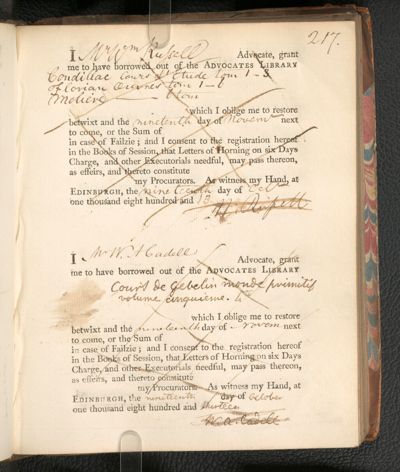 217.
I Mr Wm Russell Advocate, grant
me to have borrowed out of the ADVOCATES LIBRARY
Condillac Cours d'Etude tom 1 - 3
Florian Oeuvres tom 1 - 6
Moliere - 6 tom
which I oblige me to restore
betwixt and the nineteenth day of Novemr next
to come, or the Sum of
in case of Failzie; and I consent to the registration hereof
in the Books of Session, that Letters of Horning on six Days
Charge, and other Executorials needful, may pass thereon,
as effeirs, and thereto constitute
my Procurators. As witness my Hand, at
EDINBURGH, the nineteenth day of Octr
one thousand eight hundred and 13
I Mr W. A Cadell Advocate, grant
me to have borrowed out of the ADVOCATES LIBRARY
Court de Gebelin monde primitif
volume cinquieme. 4to
which I oblige me to restore
betwixt and the nineteenth day of Novem next
to come, or the Sum of
in case of Failzie; and I consent to the registration hereof
in the Books of Session, that Letters of Horning on six Days
Charge, and other Executorials needful, may pass thereon,
as effeirs, and thereto constitute
my Procurators. As witness my Hand, at
EDINBURGH, the nineteenth day of October
one thousand eight hundred and thirteen
W. A. Cadell